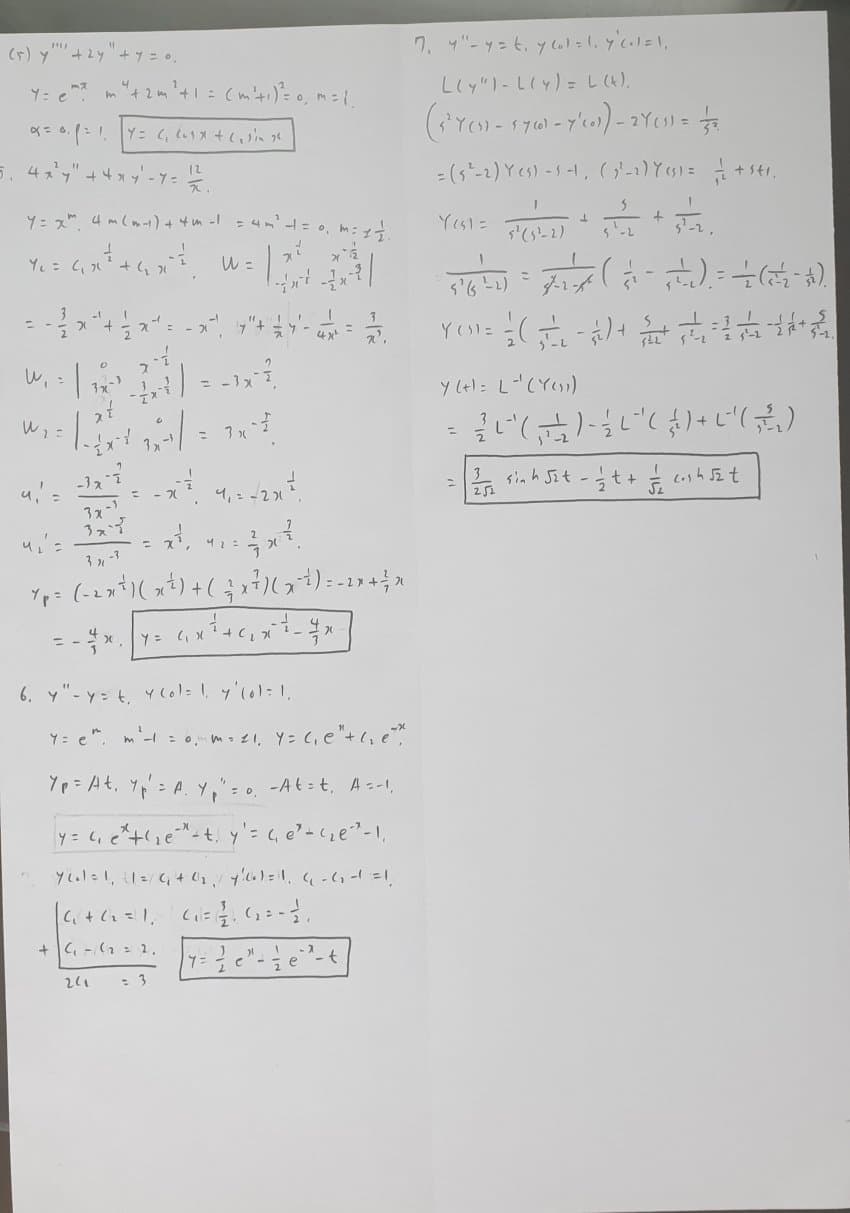 (5) y'''' + 2y'' + y = 0.
y = e^{mx}. m^4 + 2m^2 + 1 = (m^2+1)^2 = 0, m = 1.
α = 0, β = 1. y = C₁ cos x + C₂ sin x
5. 4x²y'' + 4xy' - y = 12/x.
y = x^m. 4m(m-1) + 4m - 1 = 4m² - 1 = 0, m = ±1/2.
y_c = C₁x^{1/2} + C₂x^{-1/2}. W = | x^{1/2} x^{-1/2} ; -1/2 x^{-1/2} -3/2 x^{-3/2} |
= -3/2 x^{-1} + 1/2 x^{-1} = -x^{-1}. y'' + 1/x y' - 1/4x² = 3/x³.
W₁ = | 0 x^{-1/2} ; 3x^{-3} -3/2 x^{-3/2} | = -3x^{-7/2}.
W₂ = | x^{1/2} 0 ; -1/2 x^{-1/2} 3x^{-3} | = 3x^{-5/2}.
u₁' = -3x^{-7/2} / 3x^{-3} = -x^{-1/2}. u₁ = -2x^{1/2}.
u₂' = 3x^{-5/2} / 3x^{-3} = x^{1/2}, u₂ = 2/3 x^{3/2}.
y_p = (-2x^{1/2})(x^{1/2}) + (2/3 x^{3/2})(x^{-1/2}) = -2x + 2/3 x
= -4/3 x. y = C₁x^{1/2} + C₂x^{-1/2} - 4/3 x
6. y'' - y = t, y(0) = 1, y'(0) = 1.
y = e^m. m² - 1 = 0, m = ±1, y = C₁e^x + C₂e^{-x}.
y_p = At, y_p' = A, y_p'' = 0. -At = t, A = -1.
y = C₁e^x + C₂e^{-x} - t. y' = C₁e^x - C₂e^{-x} - 1.
y(0) = 1, 1 = C₁ + C₂, y'(0) = 1, C₁ - C₂ - 1 = 1.
C₁ + C₂ = 1. C₁ = 3/2, C₂ = -1/2.
+ C₁ - C₂ = 2. y = 3/2 e^x - 1/2 e^{-x} - t
2C₁ = 3
7. y'' - y = t, y(0) = 1, y'(0) = 1.
L(y'') - L(y) = L(t).
(s²Y(s) - sy(0) - y'(0)) - 2Y(s) = 1/s².
= (s²-2)Y(s) - s - 1, (s²-2)Y(s) = 1/s² + s + 1.
Y(s) = 1/s²(s²-2) + s/s²-2 + 1/s²-2.
1/s²(s²-2) = 1/s²-2-s² (1/s² - 1/s²-2) = 1/2 (1/s²-2 - 1/s²).
Y(s) = 1/2 (1/s²-2 - 1/s²) + s/s²-2 + 1/s²-2 = 3/2 1/s²-2 - 1/2 1/s² + s/s²-2.
y(t) = L⁻¹(Y(s))
= 3/2 L⁻¹(1/s²-2) - 1/2 L⁻¹(1/s²) + L⁻¹(s/s²-2)
= 3/2√2 sinh √2t - 1/2 t + 1/√2 cosh √2 t